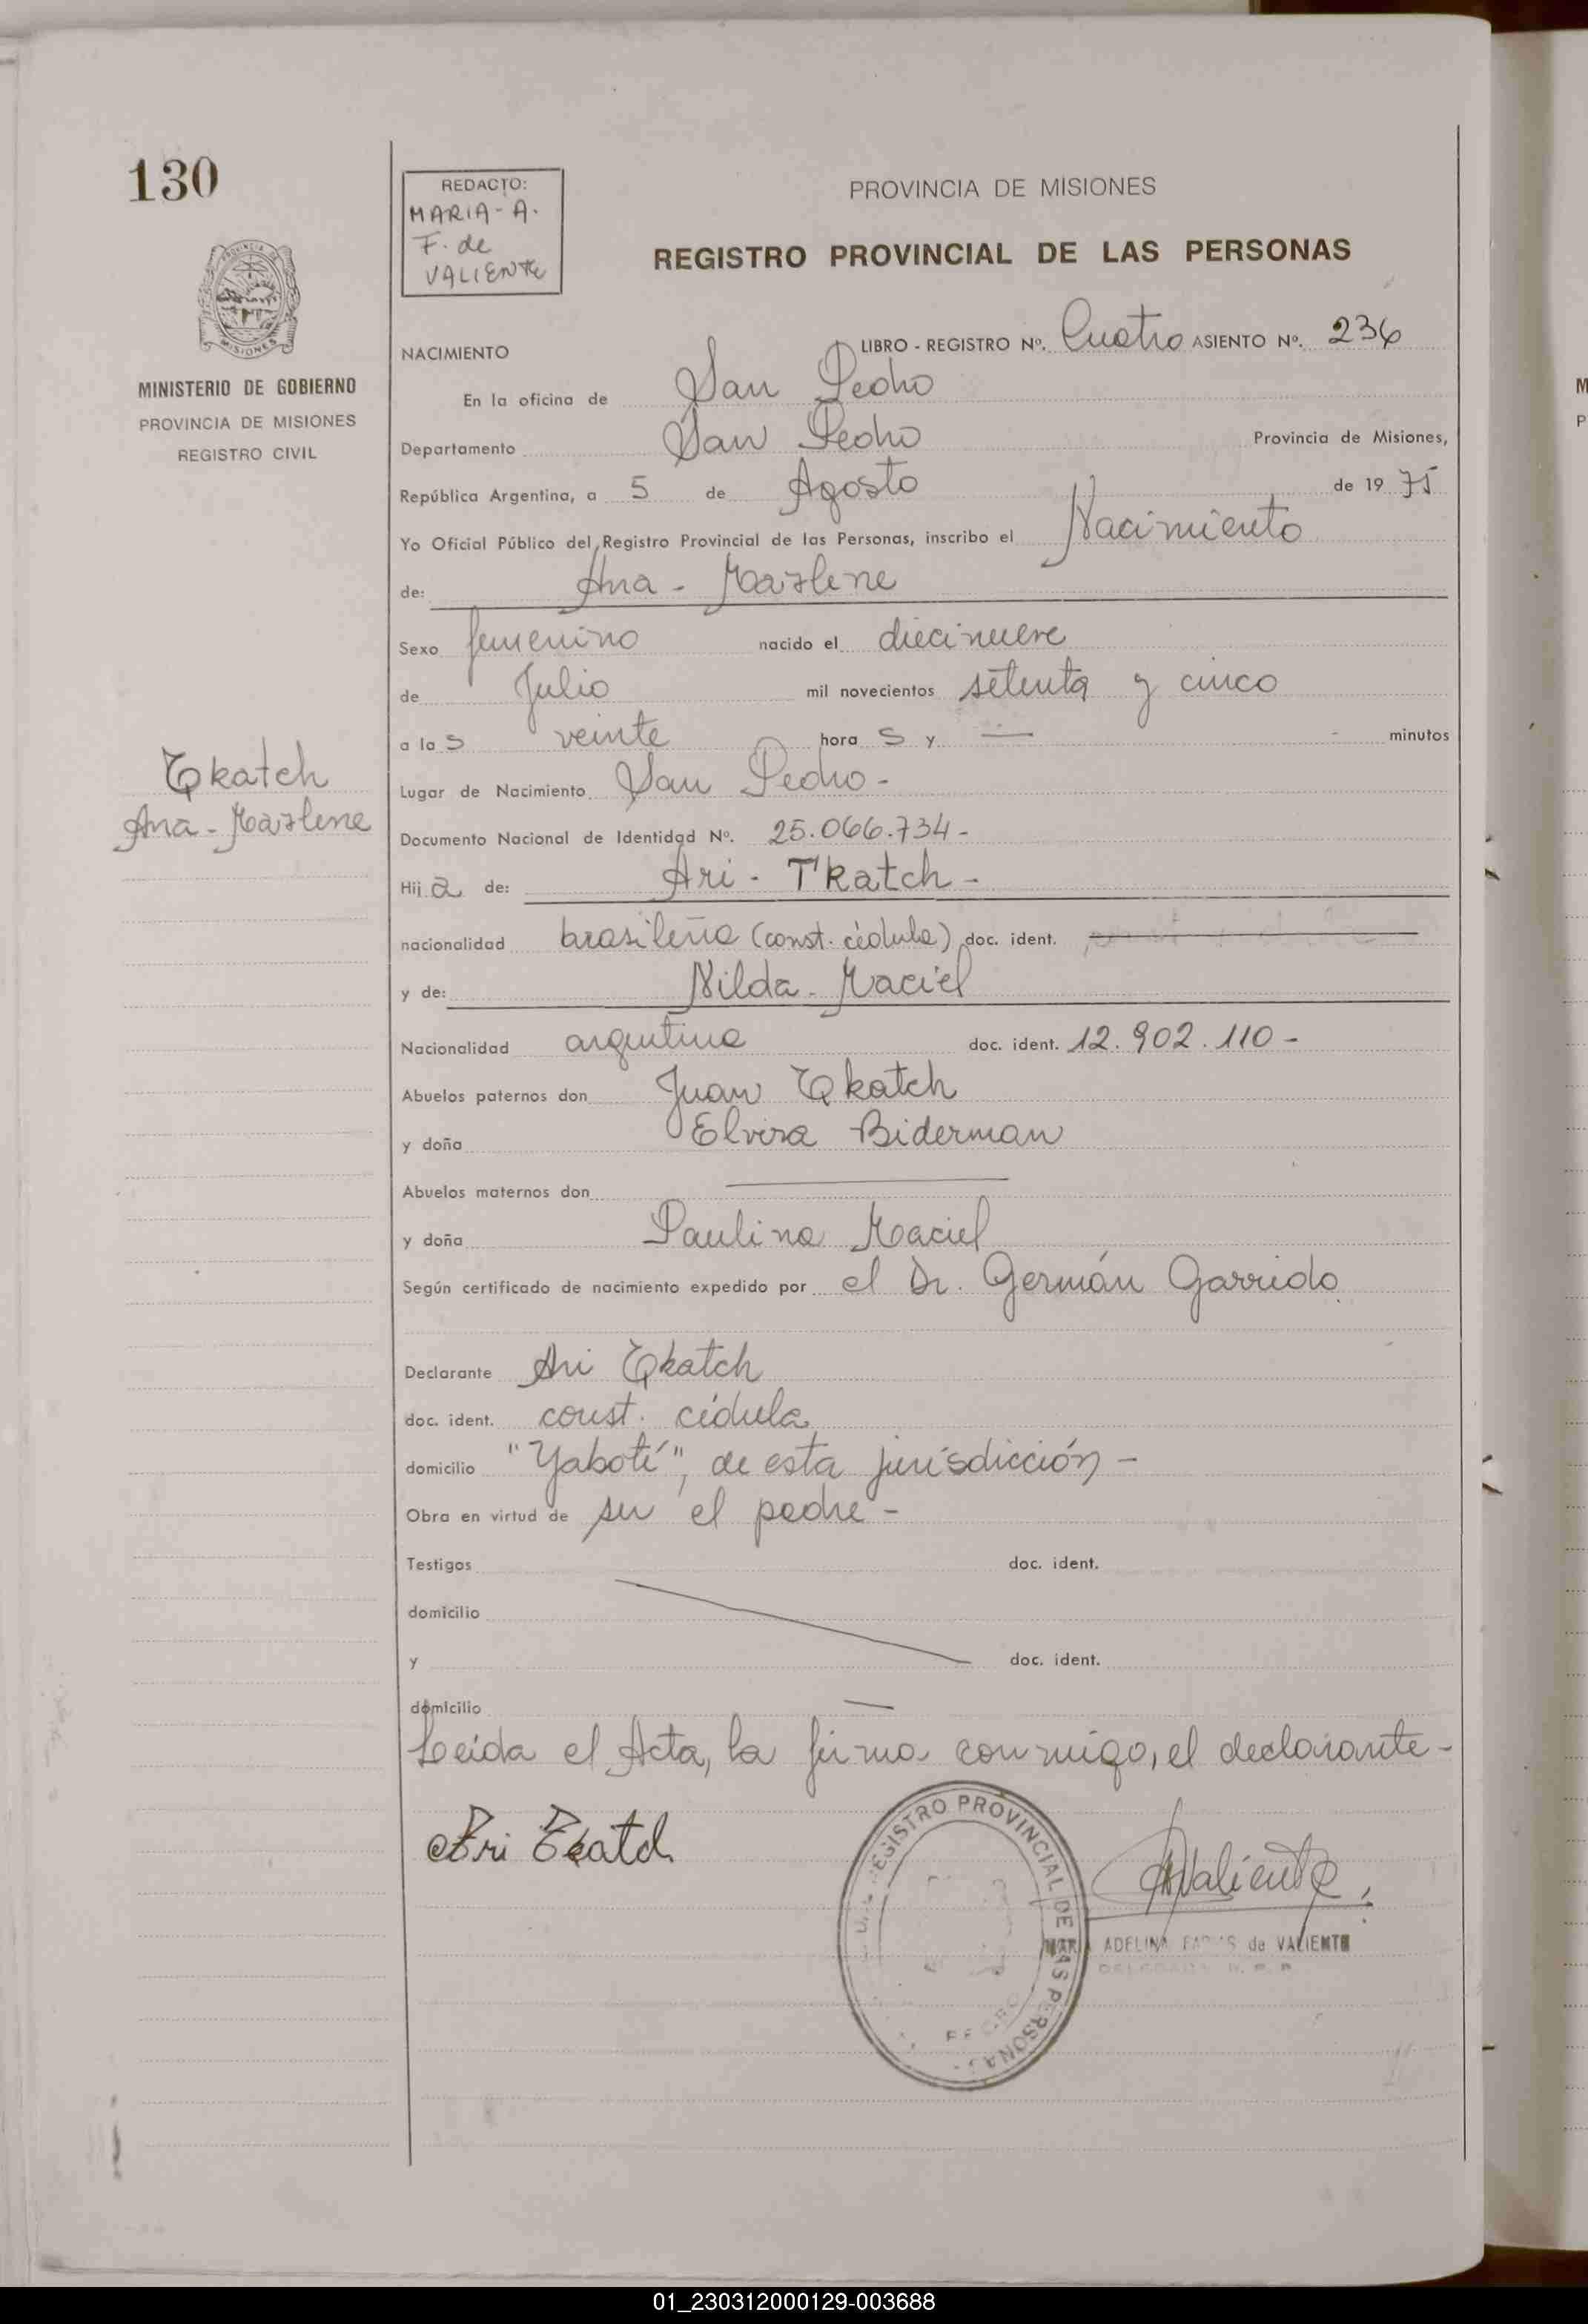 130
REDACTO:
MARIA-A.
F. de
VALIENTE
PROVINCIA DE MISIONES
REGISTRO PROVINCIAL DE LAS PERSONAS
MISIONES
MINISTERIO DE GOBIERNO
PROVINCIA DE MISIONES
REGISTRO CIVIL
NACIMIENTO LIBRO - REGISTRO Nº. Cuatro ASIENTO Nº. 236
En la oficina de San Pedro
Departamento San Pedro Provincia de Misiones,
República Argentina, a 5 de Agosto de 1975
Yo Oficial Público del Registro Provincial de las Personas, inscribo el Nacimiento
de: Ana - Marlene
Sexo femenino nacido el diecinueve
de Julio mil novecientos setenta y cinco
a las veinte hora s y — minutos
Tkatch
Ana - Marlene
Lugar de Nacimiento San Pedro -
Documento Nacional de Identidad Nº. 25.066.734 -
Hija de: Ari - Tkatch -
nacionalidad brasileña (const. cédula) doc. ident.
y de: Nilda - Maciel
Nacionalidad argentina doc. ident. 12.902.110 -
Abuelos paternos don Juan Tkatch
y doña Elvira Biderman
Abuelos maternos don
y doña Paulina Maciel
Según certificado de nacimiento expedido por el Dr. Germán Garrido
Declarante Ari Tkatch
doc. ident. const. cédula
domicilio "Yabotí", de esta jurisdicción -
Obra en virtud de ser el padre -
Testigos doc. ident.
domicilio
y doc. ident.
domicilio
Leída el Acta, la firma conmigo, el declarante -
Ari Tkatch
REGISTRO PROVINCIAL DE LAS PERSONAS
AValiente
ADELINA de VALIENTE
01_230312000129-003688